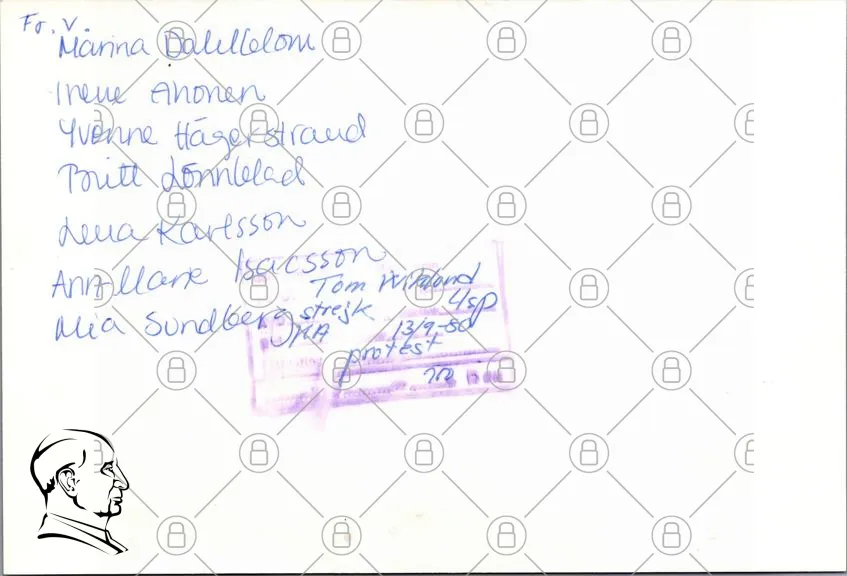 Fr. v.
Marina Dahlblom
Irene Ahonen
Yvonne Hägerstrand
Britt Lönnblad
Lena Karlsson
Ann-Marie Isacsson
Mia Sundberg
Tom Wiklund
strejk 4sp
13/9-80
protest